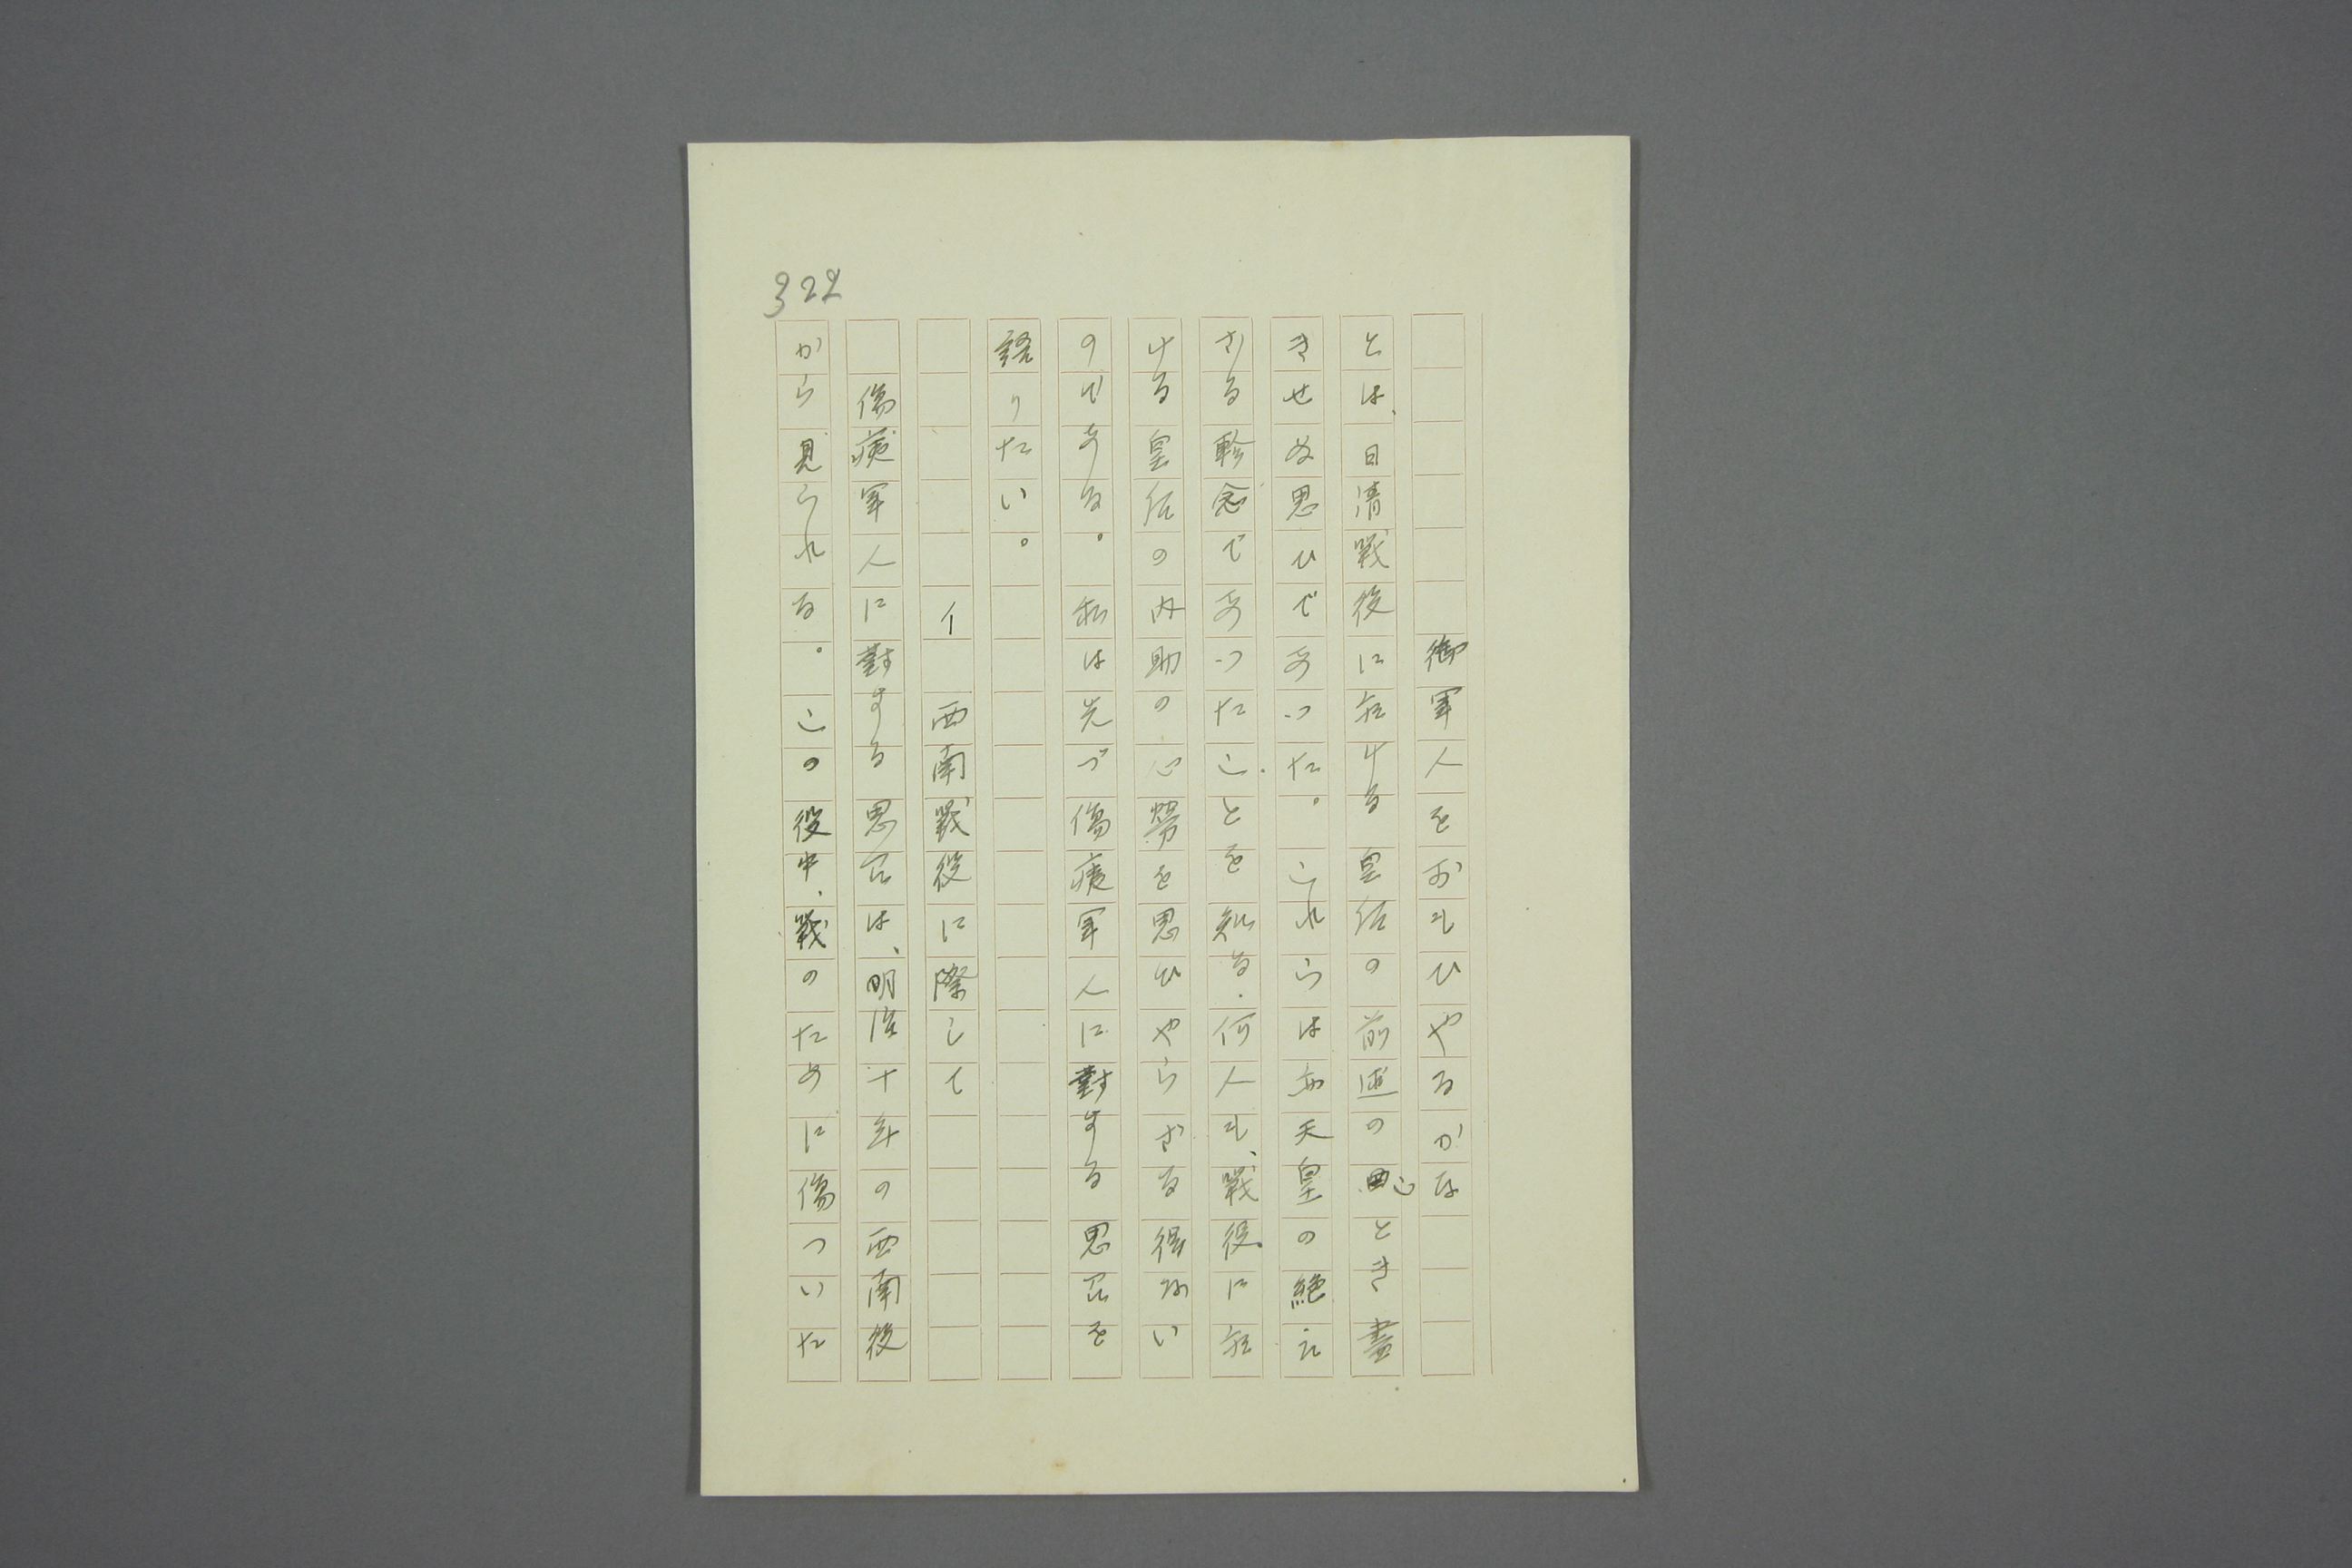 322
御軍人をおもひやるかな
とは、日清戰役に於ける皇后の前述のことき盡
きせぬ思ひであつた。これらは亦天皇の絶え
ざる軫念であつたことを知る。何人も、戰役に於
ける皇后の内助の心勞を思ひやらざる得ない
のである。私は先づ傷痍軍人に對する思召を
語りたい。
イ　西南戰役に際して
傷痍軍人に對する思召は、明治十年の西南役
から見られる。この役中、戰のために傷ついた